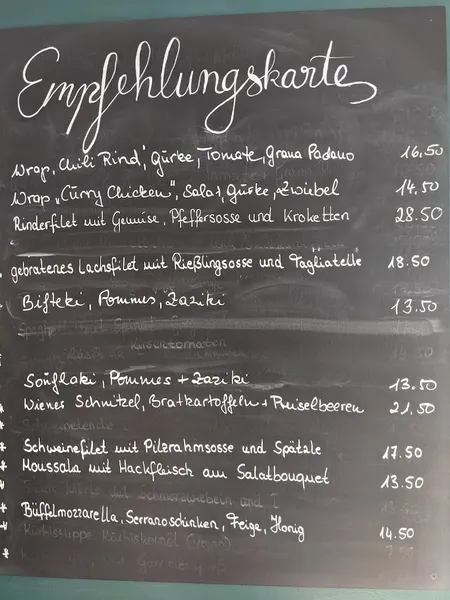 Empfehlungskarte
Wrap „Chili Rind", Gurke, Tomate, Grana Padano 16.50
Wrap „Curry Chicken", Salat, Gurke, Zwiebel 14.50
Rinderfilet mit Gemüse, Pfeffersosse und Kroketten 28.50
gebratenes Lachsfilet mit Rießlingsosse und Tagliatelle 18.50
Bifteki, Pommes, Zaziki 13.50
Souflaki, Pommes + Zaziki 13.50
Wiener Schnitzel, Bratkartoffeln + Preiselbeeren 21,50
Schweinefilet mit Pilzrahmsosse und Spätzle 17.50
Moussaka mit Hackfleisch am Salatbouquet 13.50
Büffelmozzarella, Serranoschinken, Feige, Honig 14.50